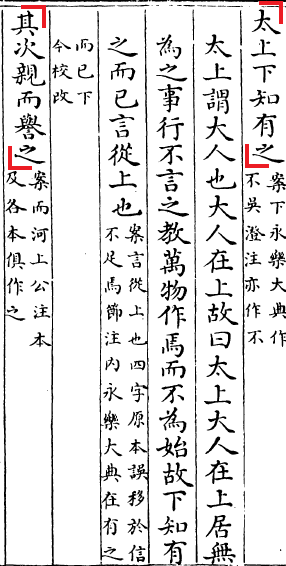 太上下知有之案下永樂大典作
不吳澄注亦作不
太上謂大人也大人在上故曰太上大人在上居無
為之事行不言之教萬物作焉而不為始故下知有
之而已言從上也案言從上也四字原本誤移於信
不足焉節注内永樂大典在有之
而已下
今校改
其次親而譽之案而河上公注本
及各本俱作之